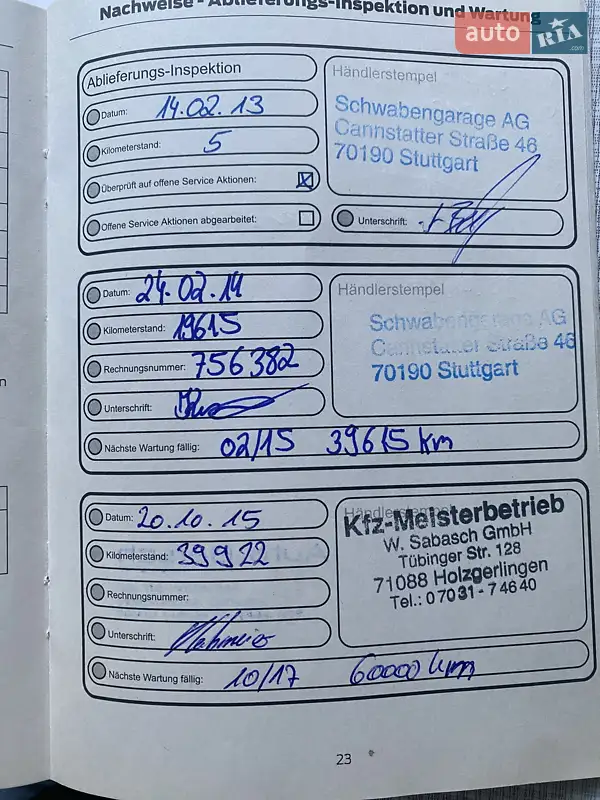 Nachweise - Ablieferungs-Inspektion und Wartung
auto RIA .com
Ablieferungs-Inspektion
Datum: 14.02.13
Kilometerstand: 5
Überprüft auf offene Service Aktionen: X
Offene Service Aktionen abgearbeitet:
Händlerstempel
Schwabengarage AG
Cannstatter Straße 46
70190 Stuttgart
Unterschrift:
Datum: 24.02.14
Kilometerstand: 19615
Rechnungsnummer: 756382
Unterschrift:
Händlerstempel
Schwabengarage AG
Cannstatter Straße 46
70190 Stuttgart
Nächste Wartung fällig: 02/15 39615 km
Datum: 20.10.15
Kilometerstand: 39922
Rechnungsnummer:
Unterschrift:
Händlerstempel
Kfz-Meisterbetrieb
W. Sabasch GmbH
Tübinger Str. 128
71088 Holzgerlingen
Tel.: 07031-74640
Nächste Wartung fällig: 10/17 60000 km
23
n